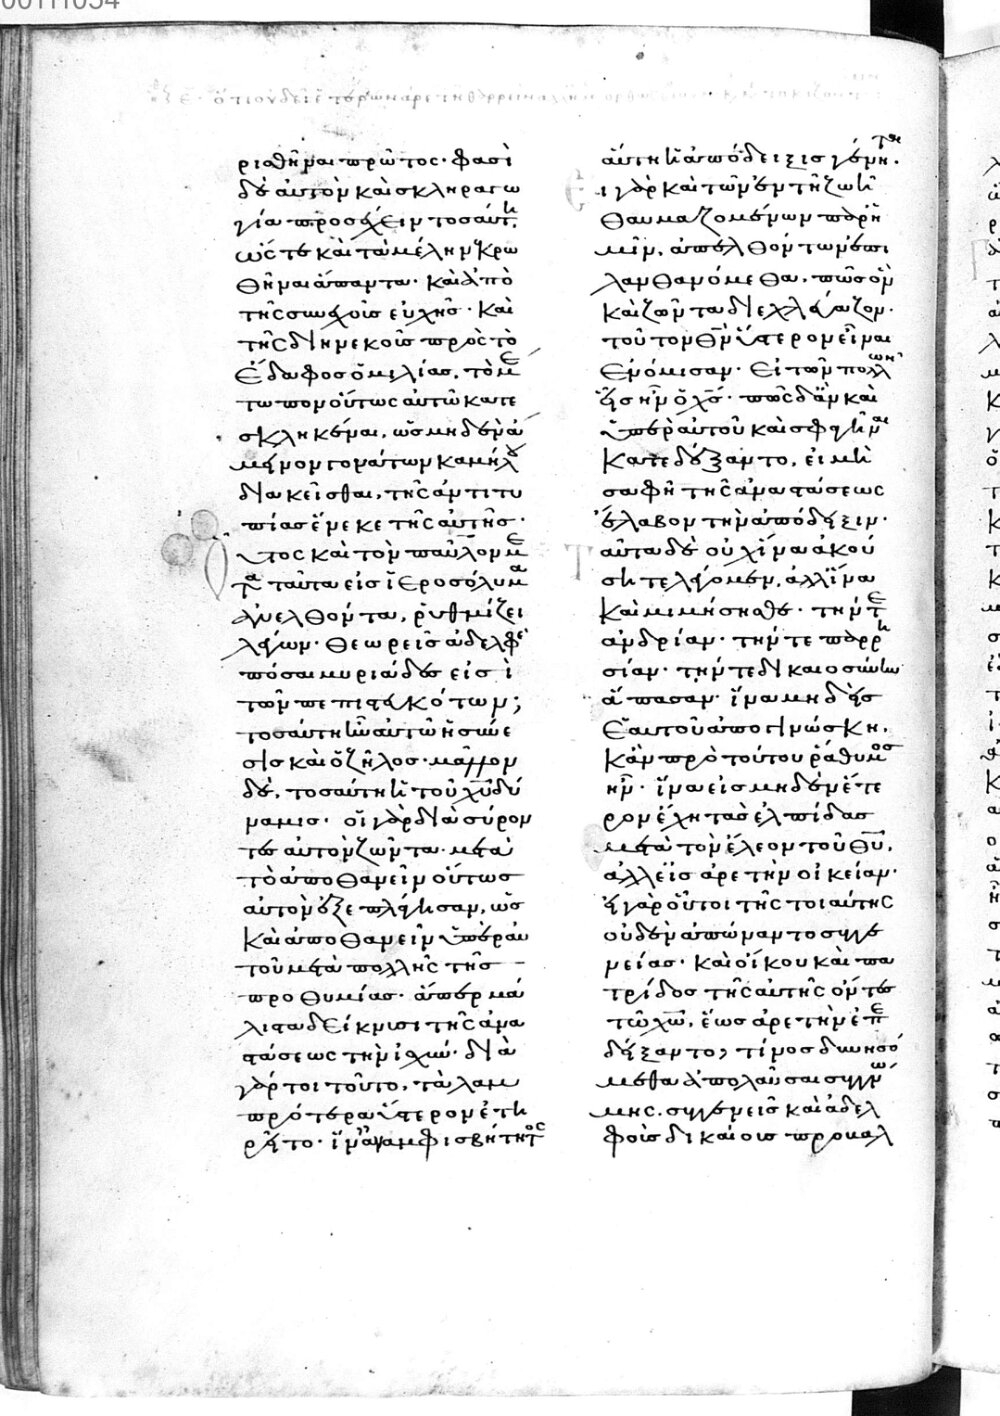 ριαθῆναι πρῶτος· φασὶ
δὲ αὐτὸν καὶ σκληραγω
γία προσέχειν τοσαύτη,
ὡς τε καὶ τὰ μέλη νεκρω
θῆναι ἅπαντα· καὶ ἀπὸ
τῆς συνεχοῦς εὐχῆς· καὶ
τῆς διηνεκοῦς πρὸς τὸ
ἔδαφος ὁμιλίας, τὸ μέ
τωπον οὕτως αὐτῶ κατε
σκληκέναι, ὡς μηδὲν ἄ
μεινον γονάτων καμήλου
διακεῖσθαι, τῆς ἀντιτυ
πίας ἕνεκε τῆς αὐτῆς·
Οὗτος καὶ τὸν παῦλον με
τὰ ταῦτα εἰς ἱεροσόλυμα
ἀνελθόντα, ῥυθμίζει
λέγων· Θεωρεῖς ἀδελφὲ
πόσαι μυριάδες εἰσὶ
τῶν πεπιστευκότων;
τοσαύτη ἦν αὐτῶ ἡ σύνε
σις καὶ ὁ ζῆλος· μᾶλλον
δὲ, τοσαύτη ἡ τοῦ χῦ δύ
ναμις· οἱ γὰρ διασύρον
τες αὐτὸν ζῶντα· μετὰ
τὸ ἀποθανεῖν οὕτως
αὐτὸν ἐξεπλάγησαν, ὡς
καὶ ἀποθανεῖν ὑπὲρ αὐ
τοῦ μετὰ πολλῆς τῆς
προθυμίας· ἅπερ μά
λιστα δείκνυσι τῆς ἀνα
στάσεως τὴν ἰσχύν· διὰ
γάρ τοι τοῦτο, τὰ λαμ
πρότερα ὕστερον ἐτη
ρεῖτο· ἵνα ἀναμφισβήτητος
αὕτη ἡ ἀπόδειξις γένηται·
Εἰ γὰρ καὶ τῶν ἐν τῆ ζωῆ
θαυμαζομένων παρ' ἡ
μῖν, ἀπελθόντων ἐπι
λανθανόμεθα, πῶς οἱ
καὶ ζῶντα διεχλεύαζον·
τοῦτον θν ὕστερον εἶναι
ἐνόμισαν· εἰ τῶν πολλῶν
εἷς ἦν ὁ χς· πῶς δ' ἂν καὶ
ὑπὲρ αὐτοῦ καὶ σφαγῆναι
κατεδέξαντο, εἰ μὴ
σαφῆ τῆς ἀναστάσεως
ἔλαβον τὴν ἀπόδειξιν·
Ταῦτα δὲ οὐχ ἵνα ἀκού
ση τε λέγομεν, ἀλλ' ἵνα
καὶ μιμήσησθε· τήν τε
ἀνδρίαν· τήν τε παρρη
σίαν· τήν τε δικαιοσύνην
ἅπασαν· ἵνα μηδεὶς
ἑαυτοῦ ἀπογινώσκη,
κἂν πρὸ τούτου ῥάθυμος
ἦν· ἵνα εἰς μηδὲν ἕτε
ρον ἔχη τὰς ἐλπίδας
μετὰ τὸν ἔλεον τοῦ θυ,
ἀλλ' εἰς ἀρετὴν οἰκείαν·
εἰ γὰρ οὗτοι τῆς τοιαύτης
οὐδὲν ἀπώναντο συγγε
νείας· καὶ οἴκου καὶ πα
τρίδος τῆς αὐτῆς ὄντες
τῶ χω, ἕως ἀρετὴν ἐπε
δείξαντο, τίνος δυνησό
μεθα ἀπολαῦσαι συγγνώ
μης, συγγενεῖς καὶ ἀδελ
φοὺς δικαίους προβαλ